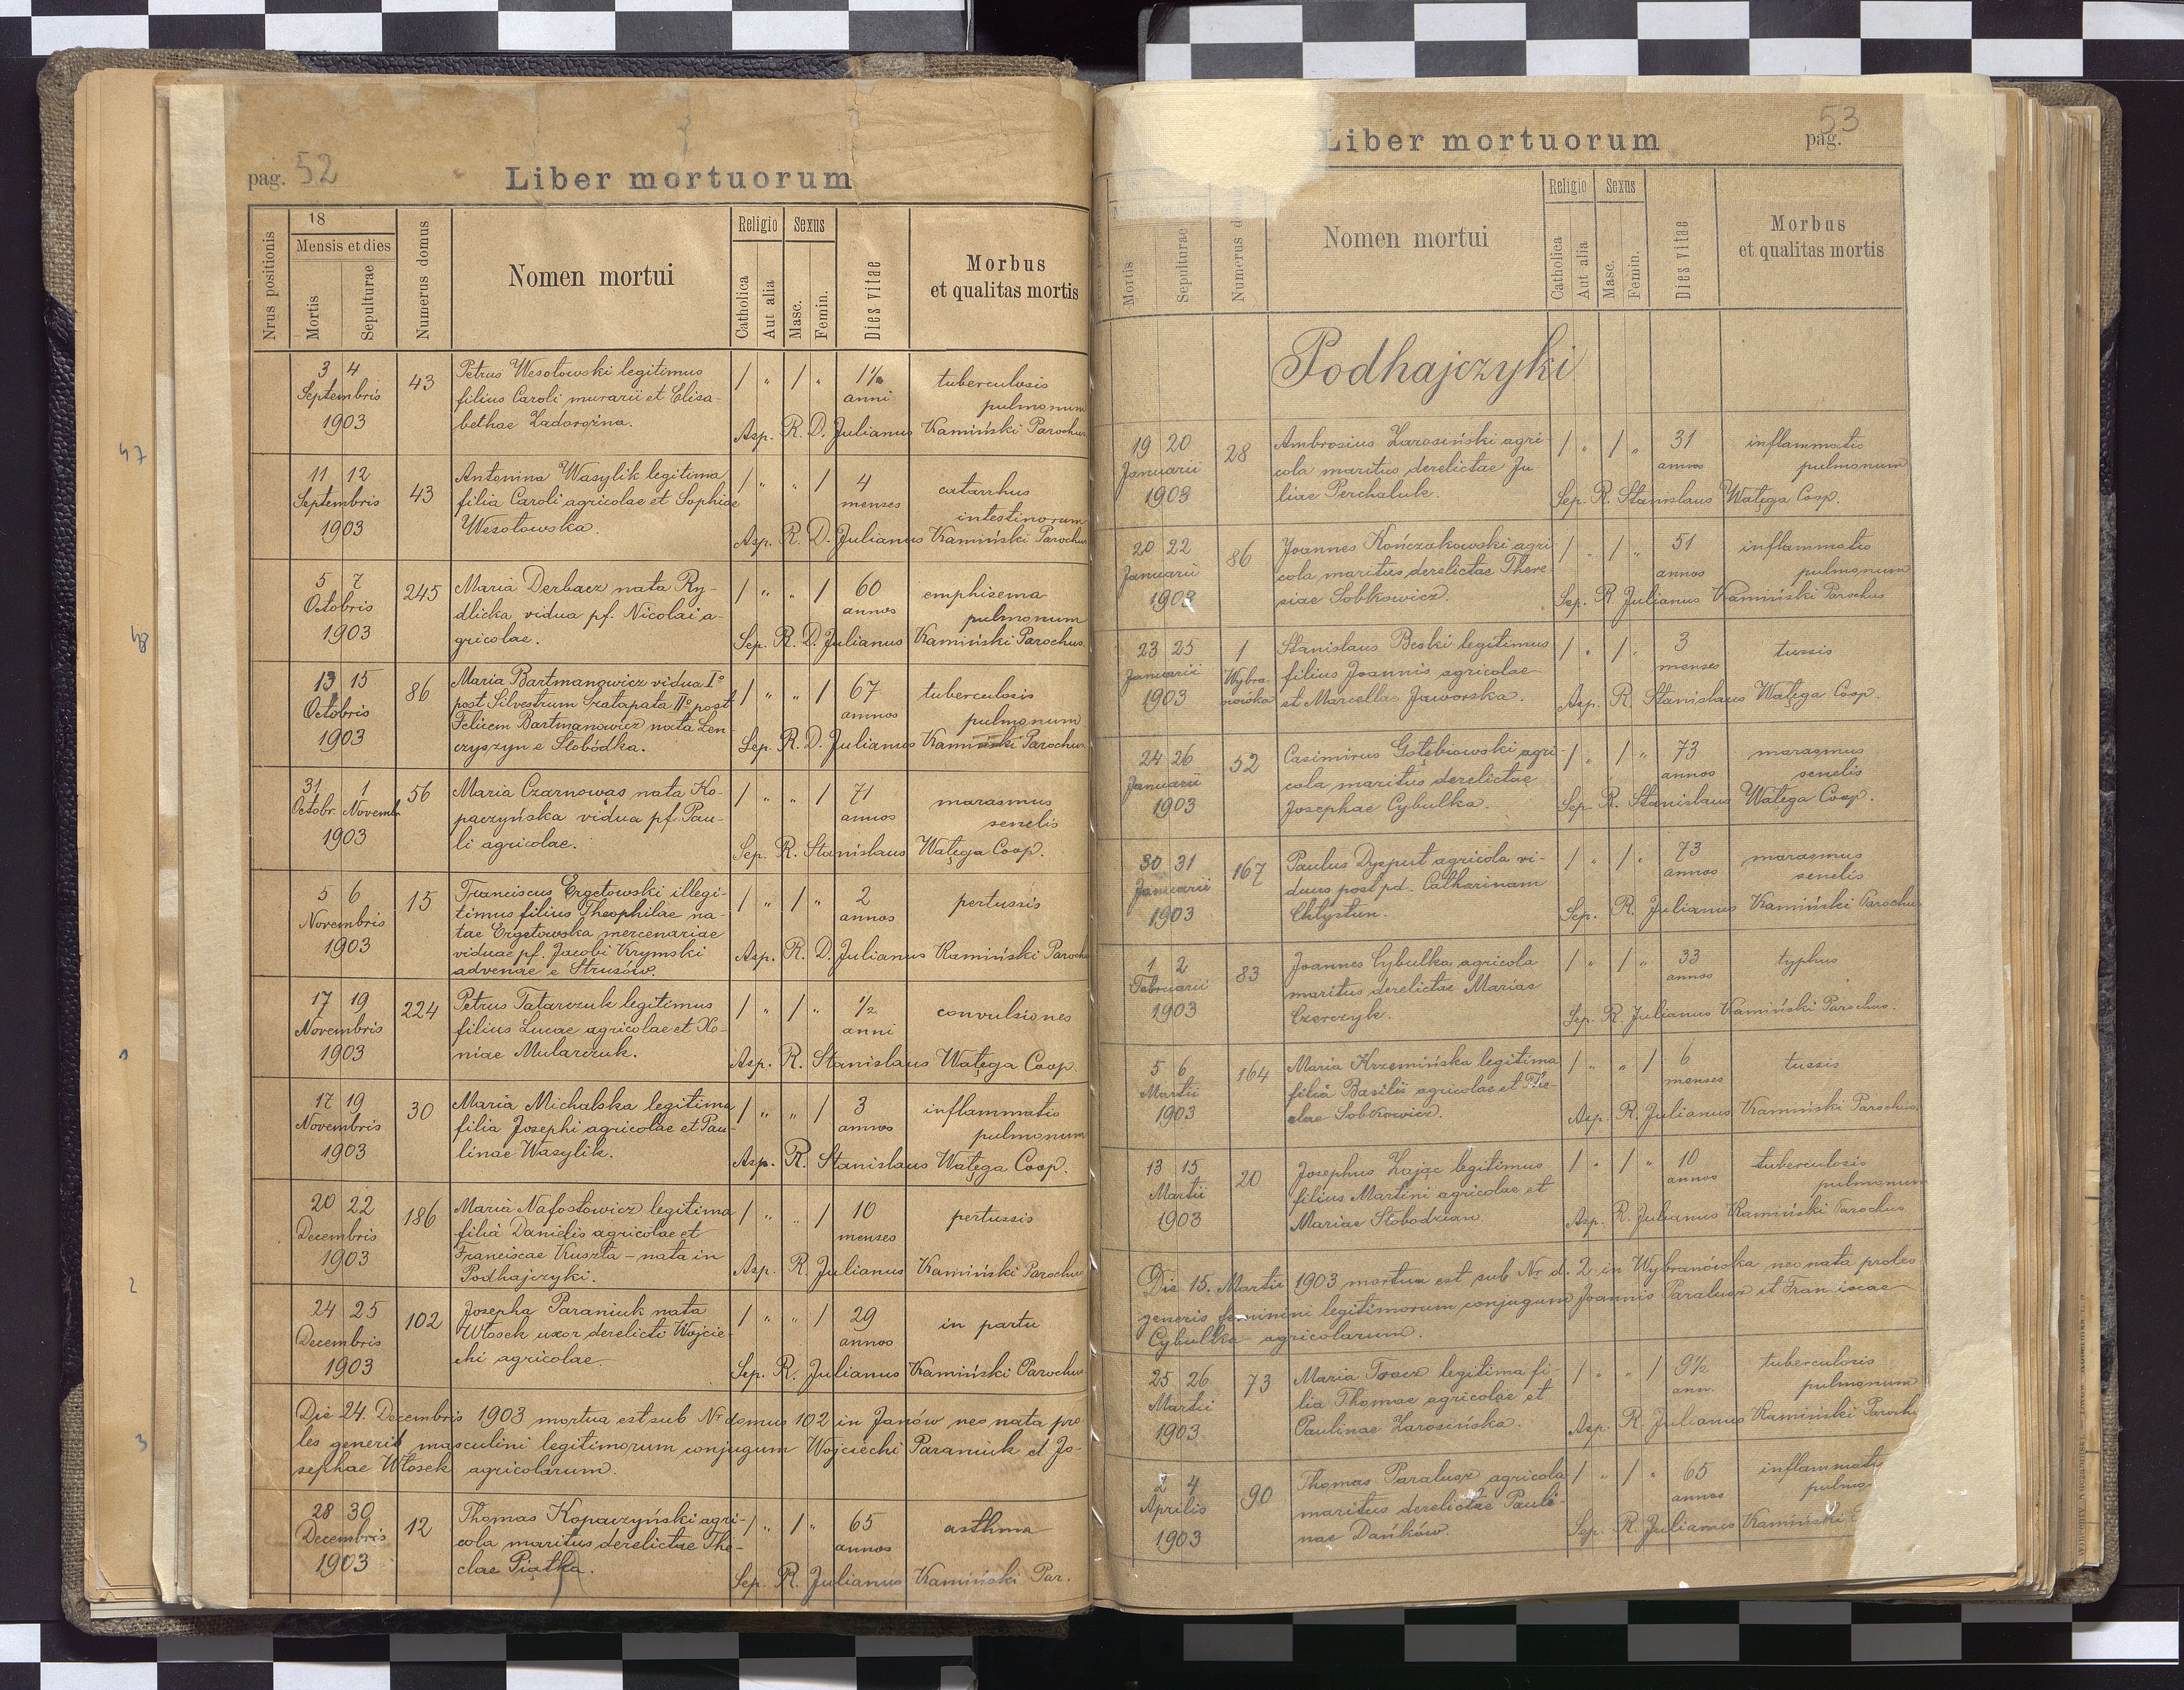 pag. 52
Liber mortuorum
Nrus positionis
18
Mensis et dies
Mortis
Sepulturae
Numerus domus
Nomen mortui
Religio
Catholica
Aut alia
Sexus
Masc.
Femin.
Dies vitae
Morbus
et qualitas mortis
3 4 43 Petrus Wesołowski legitimus / „ / „ 1½ tuberculosis
Septembris filius Caroli murarii et Elisa- anni pulmonum
1903 bethae Zadorożna. Asp. R. D. Julianus Kamiński Parochus
11 12 43 Antonina Wasylik legitima / „ „ / 4 catarrhus
Septembris filia Caroli agricolae et Sophiae menses intestinorum
1903 Wesołowska. Asp. R. D. Julianus Kamiński Parochus
5 7 245 Maria Derbacz nata Ry- / „ „ / 60 emphisema
Octobris dlicka vidua pf. Nicolai a- annos pulmonum
1903 gricolae. Sep. R. D. Julianus Kamiński Parochus.
13 15 86 Maria Bartmanowicz vidua I° / „ „ / 67 tuberculosis
Octobris post Silvestrum Szatapata II° post annos pulmonum
1903 Felicem Bartmanowicz nata Len- Sep. R. D. Julianus Kamiński Parochus
czyszyn e Słobódka.
31 1 56 Maria Czarnowas nata Ko- / „ „ / 71 marasmus
Octobr. Novembr. paczyńska vidua pf. Pau- annos senelis
1903 li agricolae. Sep. R. Stanislaus Wałęga Coop.
5 6 15 Franciscus Ergetowski illegi- / „ / „ 2 pertussis
Novembris timus filius Theophilae na- annos
1903 tae Ergetowska mercenariae
viduae pf. Jacobi Krymski Asp. R. D. Julianus Kamiński Paroch
advenae e Strusów.
17 19 224 Petrus Tatarczuk legitimus / „ / „ ½ convulsiones
Novembris filius Lucae agricolae et Xo- anni
1903 niae Mularczuk. Asp. R. Stanislaus Wałęga Coop.
17 19 30 Maria Michalska legitima / „ „ / 3 inflammatio
Novembris filia Josephi agricolae et Pau- annos pulmonum
1903 linae Wasylik. Asp. R. Stanislaus Wałęga Coop.
20 22 186 Maria Nafostowicz legitima / „ „ / 10 pertussis
Decembris filia Danielis agricolae et menses
1903 Franciscae Kuszta – nata in
Podhajczyki. Asp. R. Julianus Kamiński Parochus
24 25 102 Josepha Paraniuk nata / „ „ / 29 in partu
Decembris Włosek uxor derelicti Wojcie- annos
1903 chi agricolae. Sep. R. Julianus Kamiński Parochus
Die 24. Decembris 1903 mortua est sub Nr domus 102 in Janów neo nata pro
les generis masculini legitimorum conjugum Wojciechi Paraniuk et Jo-
sephae Włosek agricolarum.
28 30 12 Thomas Kopaczyński agri- / „ / „ 65 asthma
Decembris cola maritus derelictae The- annos
1903 clae Piątka. Sep. R. Julianus Kamiński Par.
47
48
1
2
3
53
Liber mortuorum pag.
Mortis
Sepulturae
Numerus do
Nomen mortui
Religio
Catholica
Aut alia
Sexus
Masc.
Femin.
Dies vitae
Morbus
et qualitas mortis
Podhajczyki
19 20 28 Ambrosius Zarosiński agri / „ / „ 31 inflammatio
Januarii cola maritus derelictae Ju- annos pulmonum
1903 liae Perchaluk. Sep. R. Stanislaus Wałęga Coop.
20 22 86 Joannes Kończakowski agri / „ / „ 51 inflammatio
Januarii cola maritus derelictae There- annos pulmonum
1903 siae Sobkowicz. Sep. R. Julianus Kamiński Parochus
23 25 1 Stanislaus Beski legitimus / „ / „ 3 tussis
Januarii Wybra- filius Joannis agricolae menses
1903 nówka et Marcellae Jaworska. Asp. R. Stanislaus Wałęga Coop.
24 26 52 Casimirus Gołębiowski agri- / „ / „ 73 marasmus
Januarii cola maritus derelictae annos senelis
1903 Josephae Cybulka. Sep. R. Stanislaus Wałęga Coop.
30 31 167 Paulus Dysput agricola vi- / „ / „ 73 marasmus
Januarii duus post pd. Catharinam annos senelis
1903 Chlystun. Sep. R. Julianus Kamiński Parochus
1 2 83 Joannes Cybulka agricola / „ / „ 33 typhus
Februarii maritus derelictae Mariae annos
1903 Czerczyk. Sep. R. Julianus Kamiński Parochus.
5 6 164 Maria Krzemińska legitima / „ „ / 6 tussis
Martii filia Basilii agricolae et The- menses
1903 clae Sobkowicz. Asp. R. Julianus Kamiński Parochus.
13 15 20 Josephus Zając legitimus / „ / „ 10 tuberculosis
Martii filius Martini agricolae et annos pulmonum
1903 Mariae Słobodzian. Asp. R. Julianus Kamiński Parochus
Die 15. Martii 1903 mortua est sub Nr. d. 2 in Wybranówka neo nata proles
generis feminini legitimorum conjugum Joannis Paralusz et Franciscae
Cybulka agricolarum.
25 26 73 Maria Tracz legitima fi- / „ „ / 9½ tuberculosis
Martii lia Thomae agricolae et ann. pulmonum
1903 Paulinae Zarosińska. Asp. R. Julianus Kamiński Paroch
2 4 90 Thomas Paralusz agricola / „ / „ 65 inflammatio
Aprilis maritus derelictae Pauli- annos pulmo
1903 nae Dańków. Sep. R. Julianus Kamiński